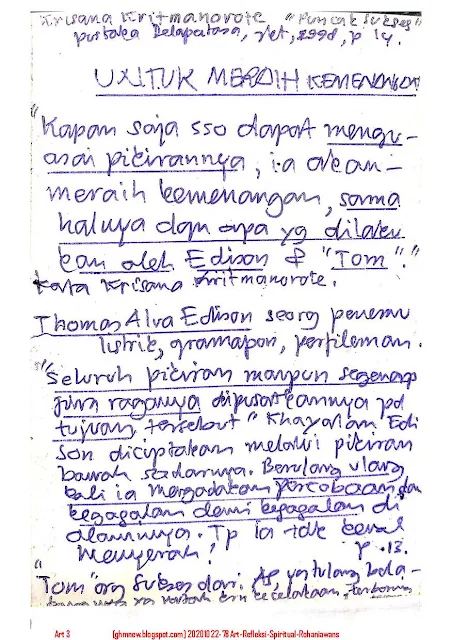 Krisana Kritmanorote "Puncak Sukses"
pustaka Delapatosa, jkt, 1998, p 14.
UNTUK MERAIH KEMENANGAN
"Kapan saja sso dapat mengu-
asai pikirannya, ia akan
meraih kemenangan, sama
halnya dgn apa yg dilaku
kan oleh Edison & "Tom"."
Kata Krisana Kritmanorote.
Thomas Alva Edison seorg penemu
listrik, gramapon, perfileman.
"Seluruh pikiran maupun segenap
jiwa raganya dipusatkannya pd
tujuan tersebut" Khayalan Edi
son diciptakan melalui pikiran
bawah sadarnya. Berulang ulang
kali ia mengadakan percobaan, dan
kegagalan demi kegagalan di
alaminya. Tp ia tdk kenal
menyerah! p. 13.
"Tom" org Sukses dari AS, yg tulang bela-
kecelakaan,
Art 3 [ghmnew.blogspot.com] 20201022-78 Art-Refleksi-Spiritual-Rohaniawans